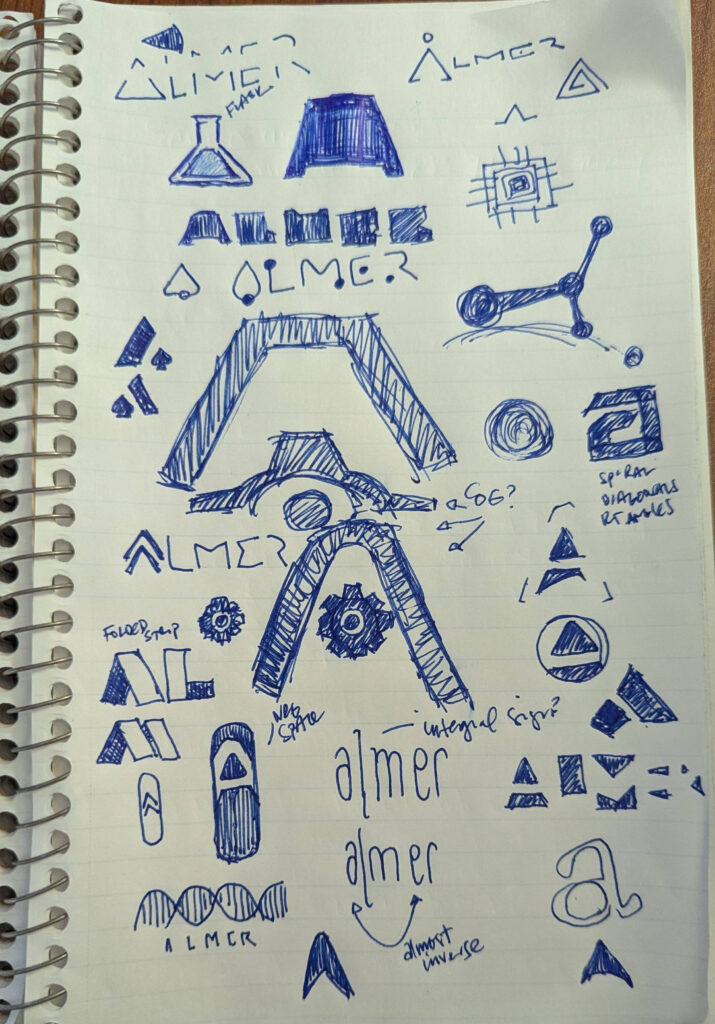 ALMER
ALMER
FLASK
ALMER
ALMER
a
COG?
SPIRAL
DIAGONALS
RT ANGLES
ALMER
FOLDED STRIP
AL
NEG
SPACE
integral sign?
almer
almer
almost
inverse
a
ALMER